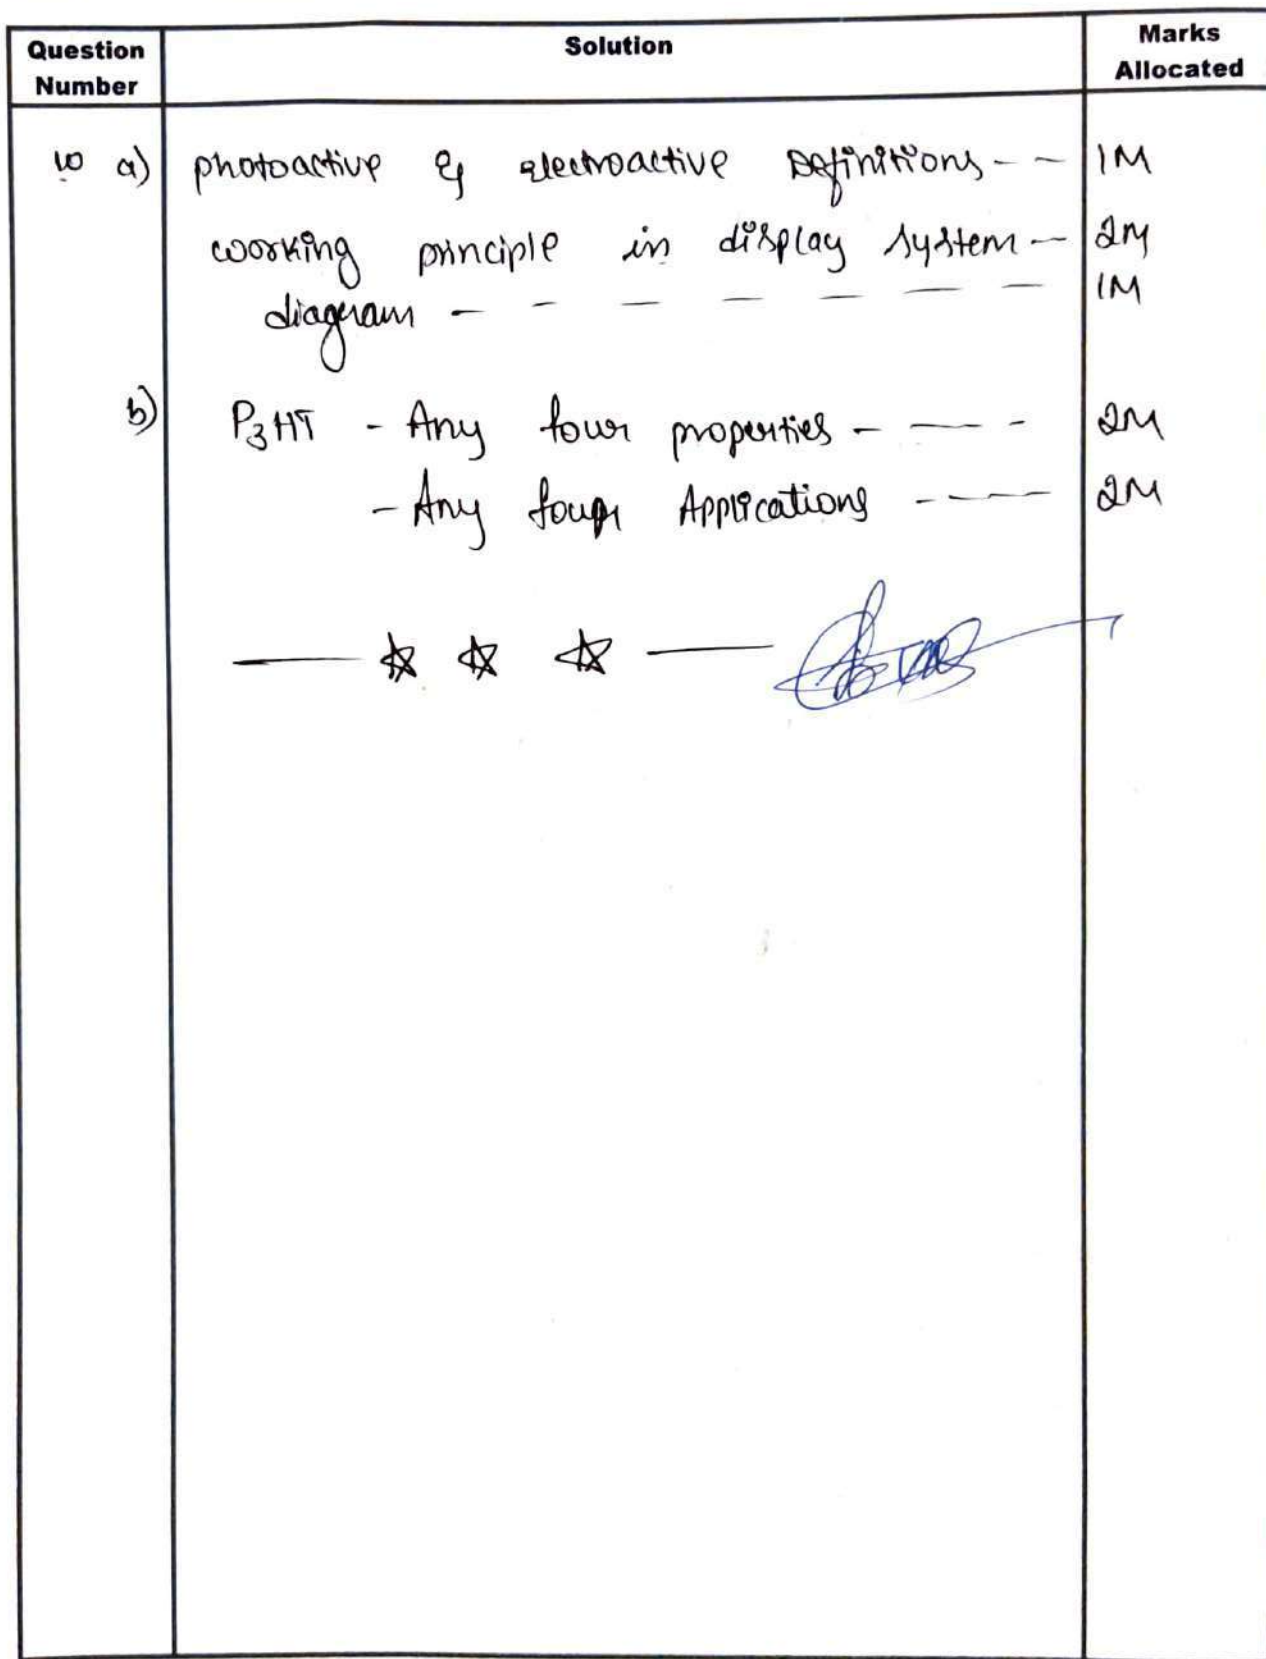 Question Number
Solution
Marks Allocated
10 a) photoactive & electroactive Definitions - - 1M
working principle in display system - 2M
diagram - - - - - - - - 1M
b) P3HT - Any four properties - - - - 2M
- Any four Applications - - - - 2M